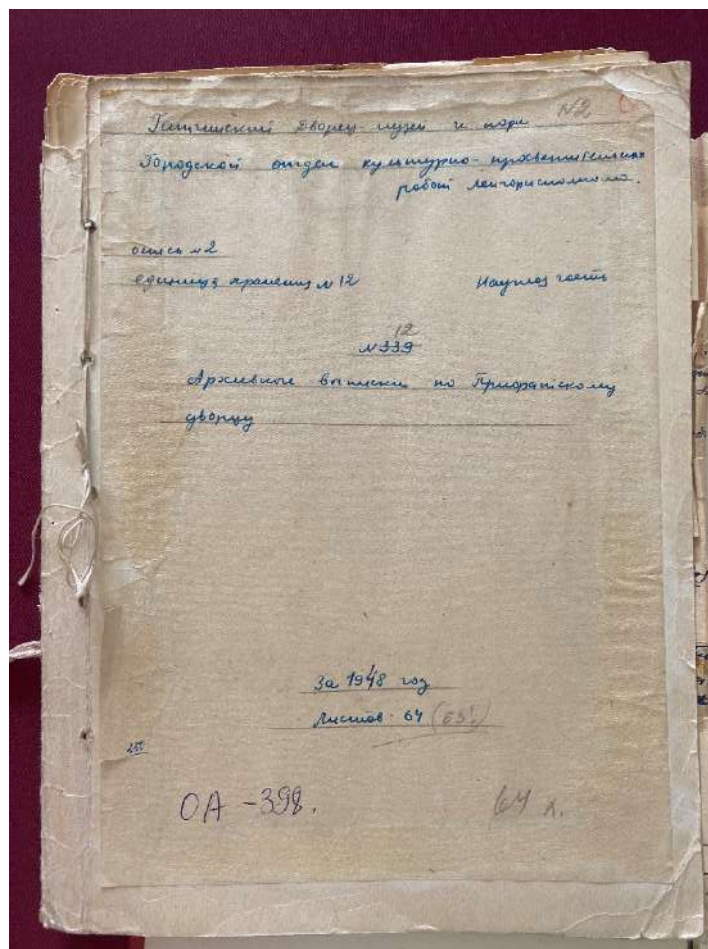 N2
Гатчинский Дворец-музей и парк
Городской отдел культурно-просветительных
работ Ленгорисполкома.
опись №2
единица хранения №12 Научная часть
12
№339
Архивные выписки по Приоратскому
дворцу
За 1948 год
Листов 64 (63!)
ОА-398. 64 л.